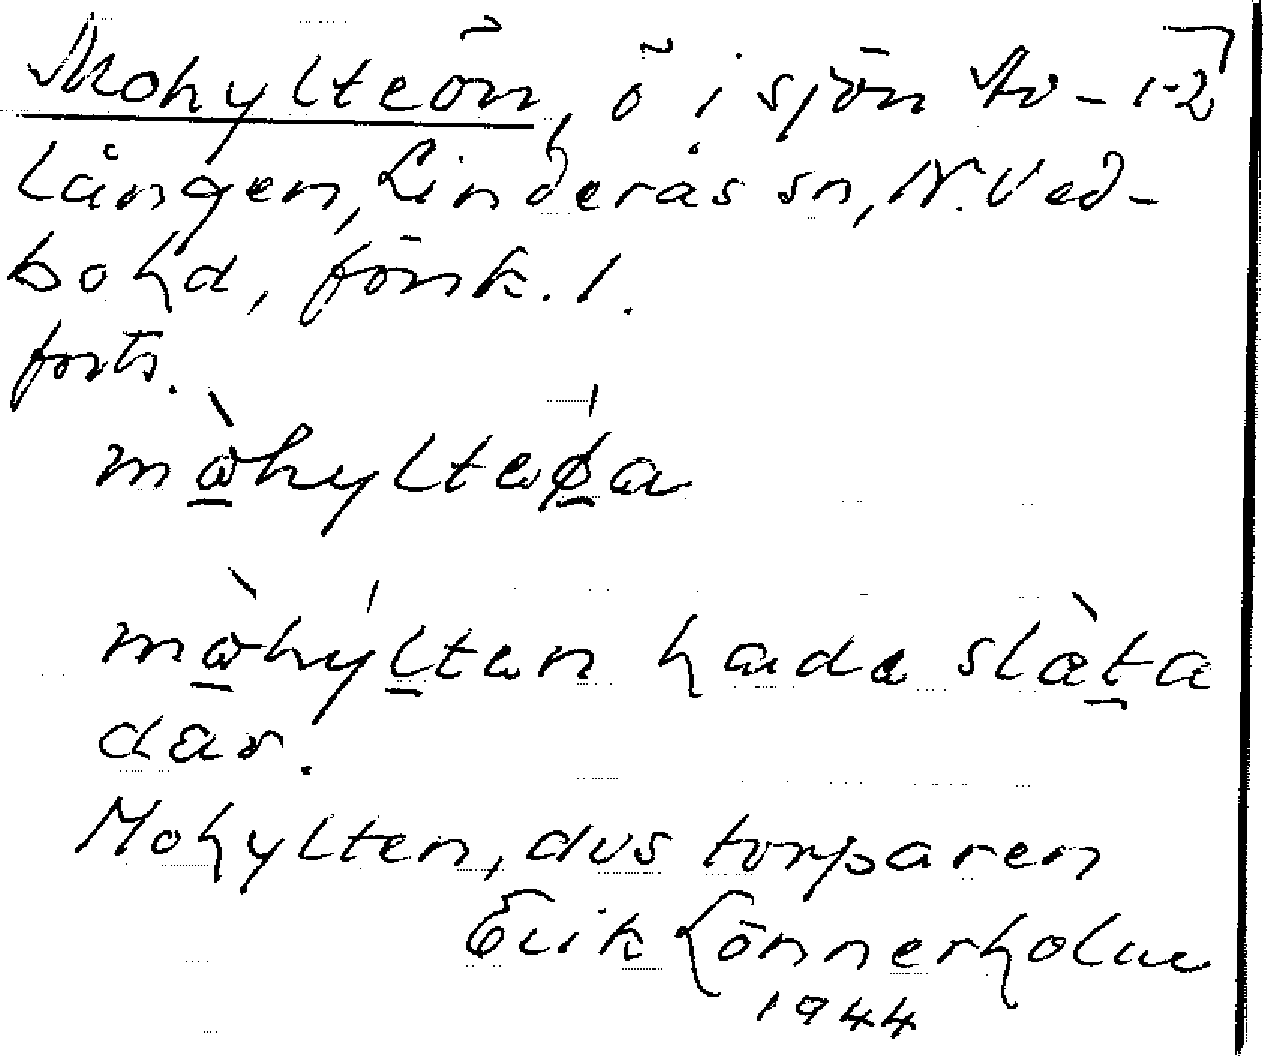 Mohylteön, ö i sjön Av-1-2
Lången, Linderås sn, N. Ved-
bohd, försk. 1.
forts.
mòhylteøa
mòhýlten hade slæ̀ta
dar.
Mohylten, dvs torparen
Erik Lönnerholm
1944